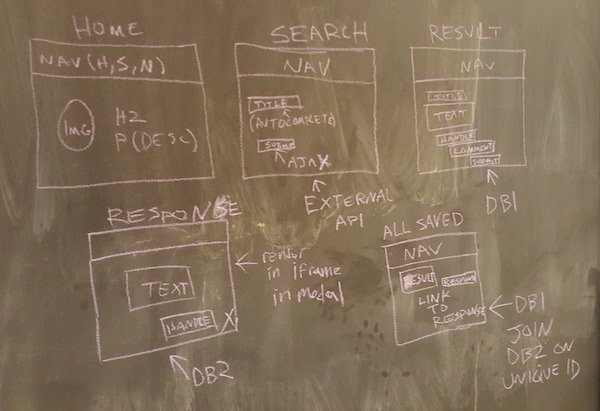 HOME
NAV(H,S,N)
IMG
H2
P(DESC)
SEARCH
NAV
TITLE
(AUTOCOMPLETE)
SUBMIT
AJAX
EXTERNAL
API
RESULT
NAV
TITLE
TEXT
HANDLE
COMMENT
SUBMIT
DB1
RESPONSE
TEXT
HANDLE X
DB2
render
in iframe
in modal
ALL SAVED
NAV
RESULT
LINK
TO
RESPONSE
DB1
JOIN
DB2 ON
UNIQUE ID